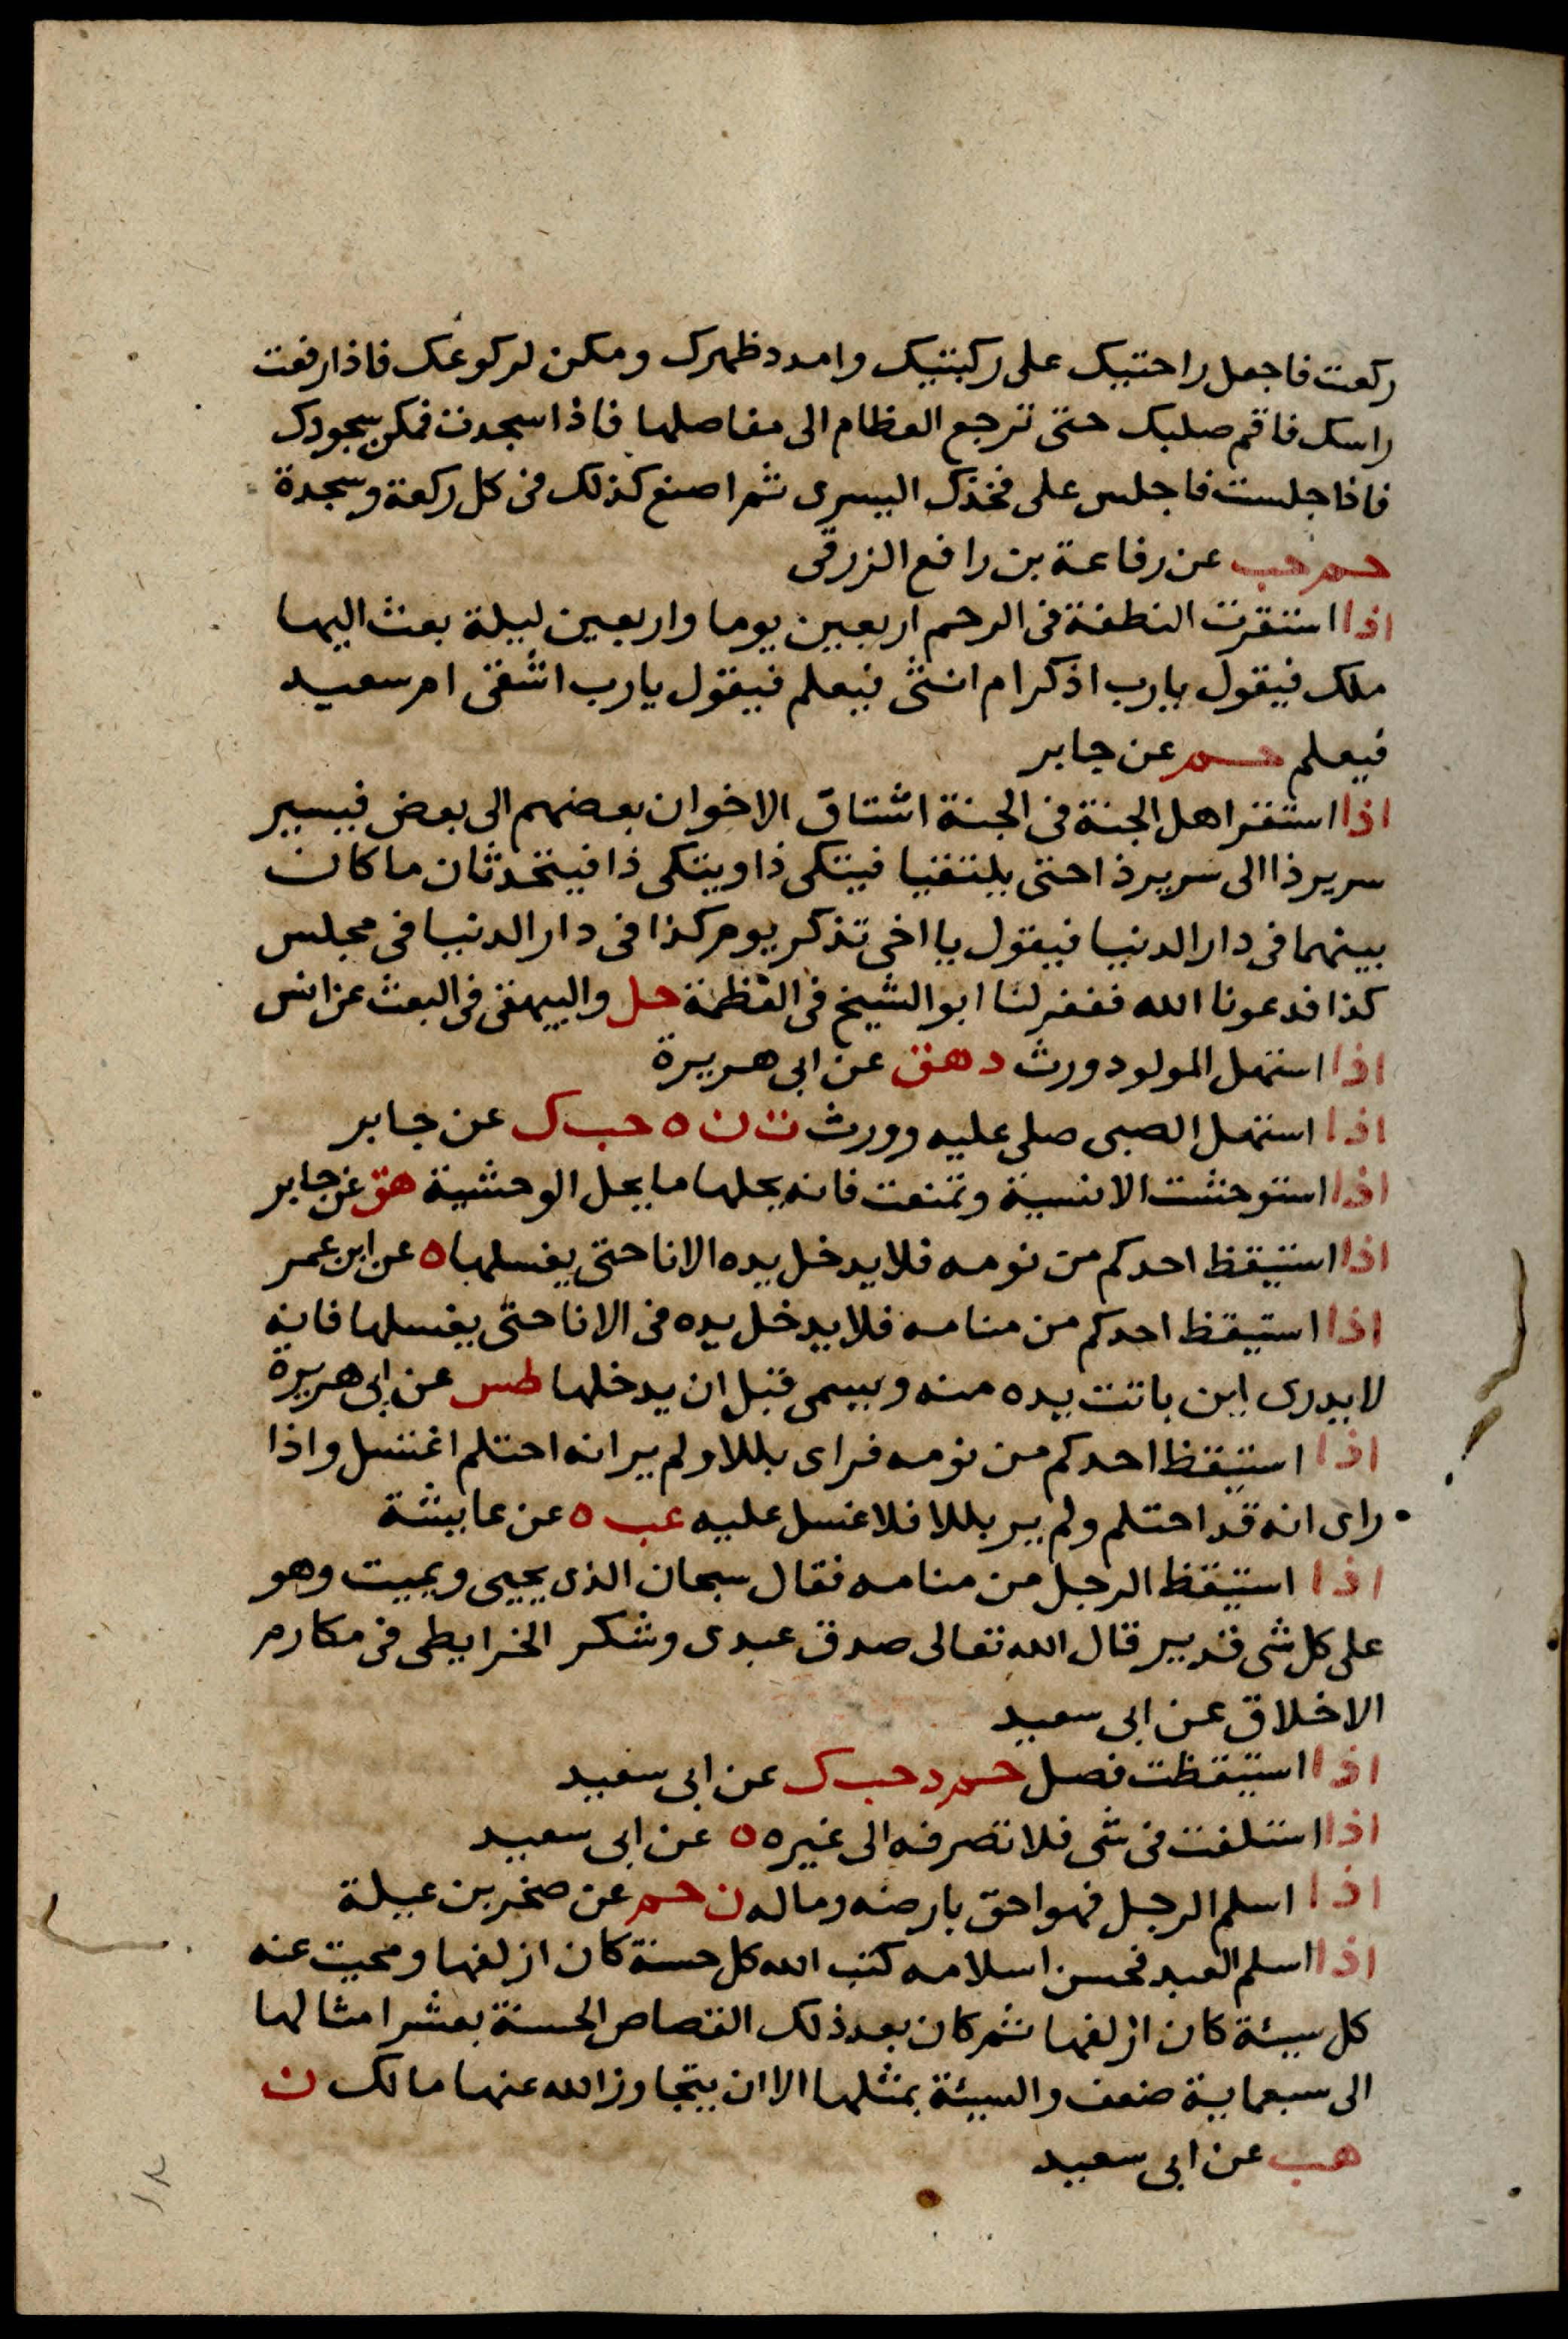 ركعت فاجعل راحتيك على ركبتيك وامدد ظهرك ومكن لركوعك فاذا رفعت
راسك فاقم صلبك حتى ترجع العظام الى مفاصلها فاذا سجدت فمكن سجودك
فاذا جلست فاجلس على فخذك اليسرى ثم اصنع كذلك فى كل ركعة وسجدة
حم حب عن رفاعة بن رافع الزرقى
اذا استقرت النطفة فى الرحم اربعين يوما واربعين ليلة بعث اليها
ملك فيقول يارب اذكر ام انثى فيعلم فيقول يارب اشقى ام سعيد
فيعلم حم عن جابر
اذا استقر اهل الجنة فى الجنة اشتاق الاخوان بعضهم الى بعض فيسير
سرير ذا الى سرير ذا حتى يلتقيا فيتكى ذا ويتكى ذا فيتحدثان ما كان
بينهما فى دار الدنيا فيقول يا اخى تذكر يوم كذا فى دار الدنيا فى مجلس
كذا فدعونا الله فغفر لنا ابو الشيخ فى العظمة حل والبيهقى فى البعث عن انس
اذا استهل المولود ورث د هق عن ابى هريرة
اذا استهل الصبى صلى عليه وورث ت ن ه حب ك عن جابر
اذا استوحشت الانسية وتمنعت فانه يحلها ما يحل الوحشية هق عن جابر
اذا استيقظ احدكم من نومه فلا يدخل يده الانا حتى يغسلها ه عن ابن عمر
اذا استيقظ احدكم من منامه فلا يدخل يده فى الانا حتى يغسلها فانه
لا يدرى اين باتت يده منه ويسمى قبل ان يدخلها طس عن ابى هريرة
اذا استيقظ احدكم من نومه فراى بللا ولم ير انه احتلم اغتسل واذا
راى انه قد احتلم ولم ير بللا فلا غسل عليه عب ه عن عايشة
اذا استيقظ الرجل من منامه فقال سبحان الذى يحيى ويميت وهو
على كل شى قدير قال الله تعالى صدق عبدى وشكر الخرايطى فى مكارم
الاخلاق عن ابى سعيد
اذا استيقظت فصل حم د حب ك عن ابى سعيد
اذا استلفت فى شى فلا تصرفه الى غيره ه عن ابى سعيد
اذا اسلم الرجل فهو احق بارضه وماله ن حم عن صخر بن عيلة
اذا اسلم العبد فحسن اسلامه كتب الله كل حسنة كان ازلفها ومحيت عنه
كل سيئة كان ازلفها ثم كان بعد ذلك القصاص الحسنة بعشر امثالها
الى سبعماية ضعف والسيئة بمثلها الا ان يتجاوز الله عنها مالك ن
هب عن ابى سعيد